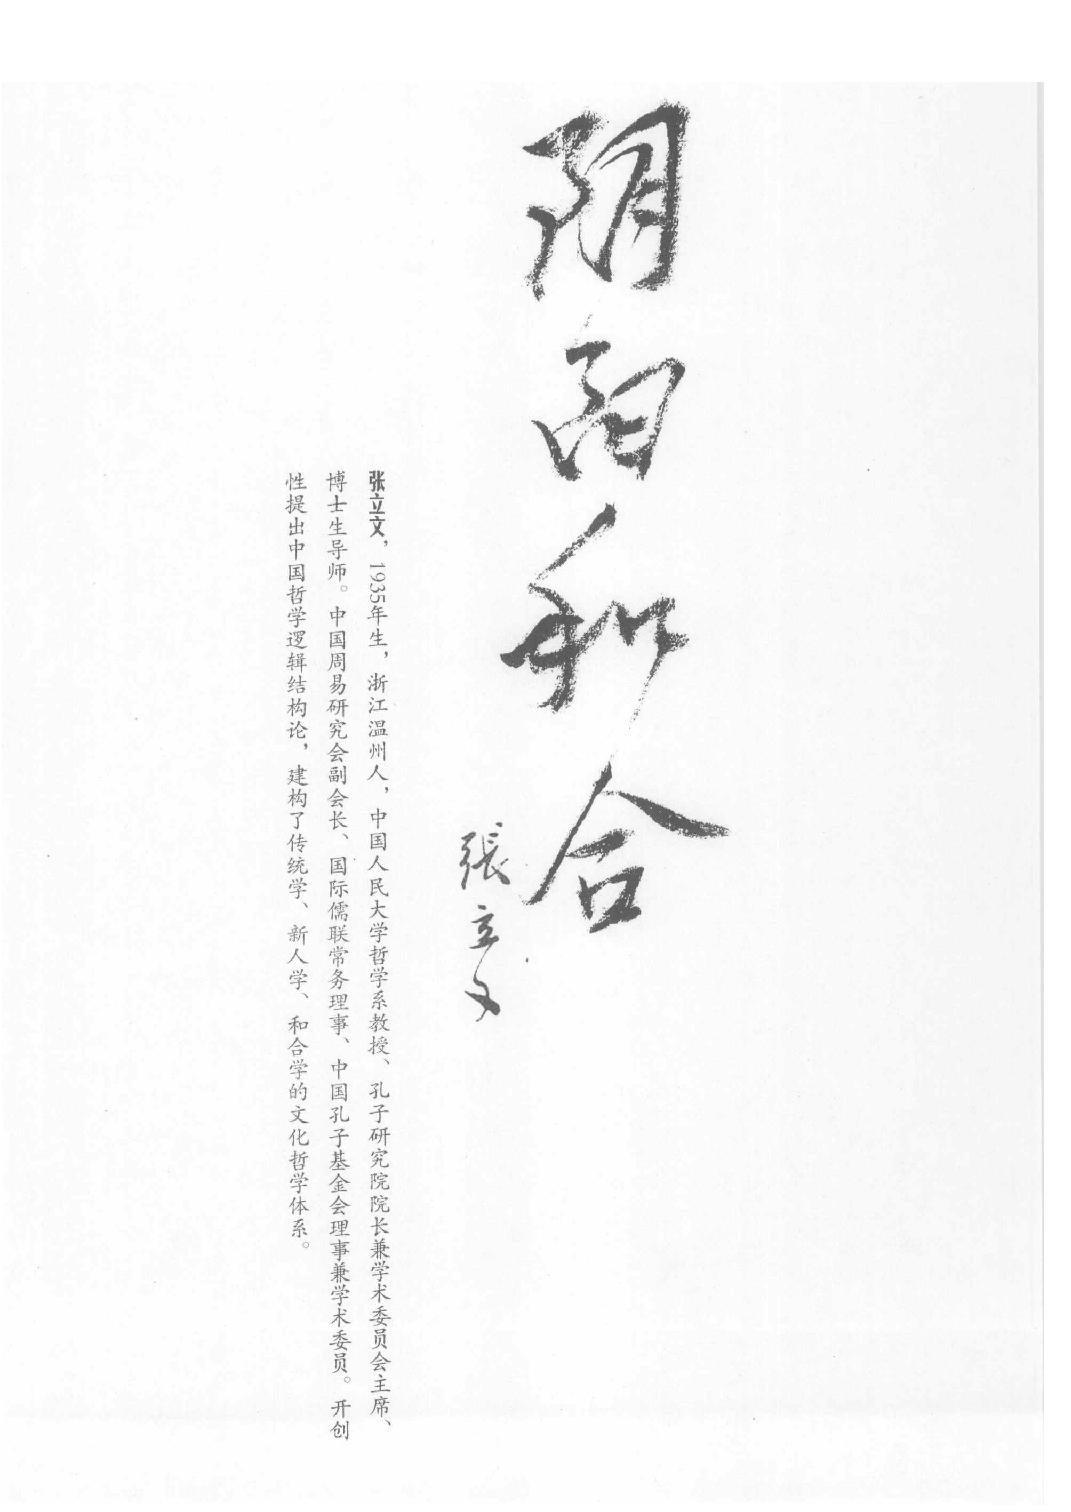 阴阳和合
張立文
张立文，1935年生，浙江温州人，中国人民大学哲学系教授、孔子研究院院长兼学术委员会主席、
博士生导师。中国周易研究会副会长、国际儒联常务理事、中国孔子基金会理事兼学术委员。开创
性提出中国哲学逻辑结构论，建构了传统学、新人学、和合学的文化哲学体系。